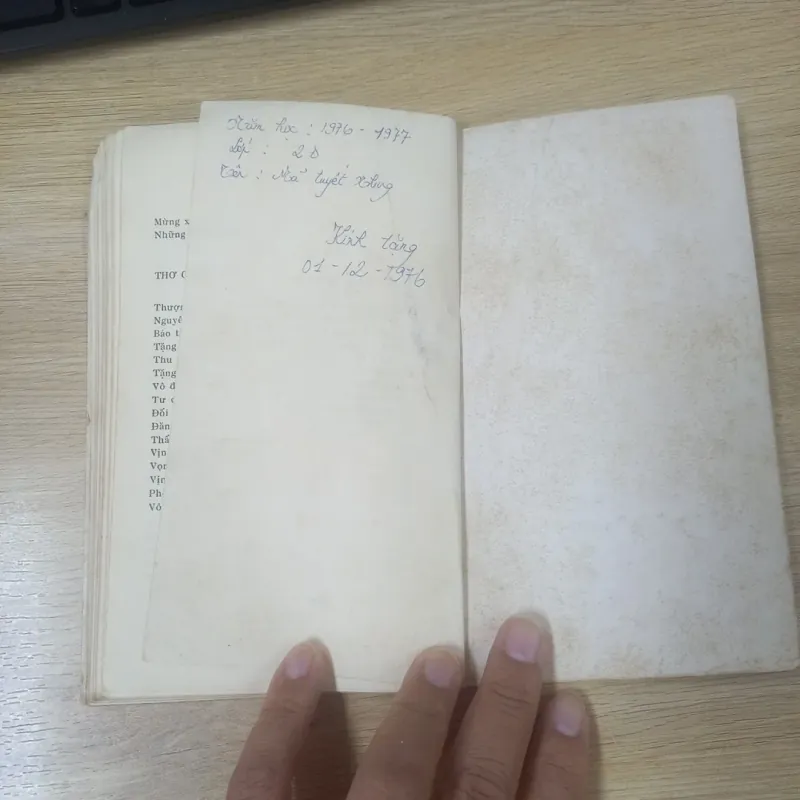 Năm học : 1976 - 1977
Lớp : 2 D
Tên : Mã tuyết Nhung
Kính tặng
01 - 12 - 1976
Mừng x
Những
THƠ C
Thượn
Nguyê
Báo t
Tặng
Thu
Tặng
Vô đ
Tư c
Đối
Đăn
Thấ
Vịn
Vọn
Vịn
Ph
Vô